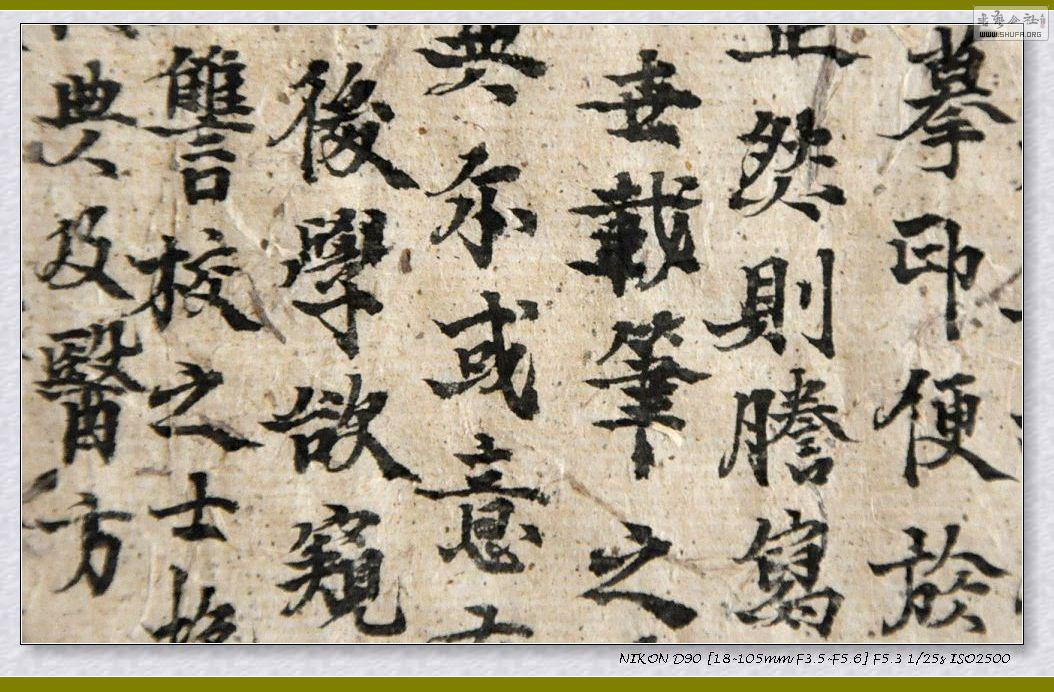 書藝公社
WWW.SHUFA.ORG
摹印便於
正然則謄寫
載筆之
典 或意
後學欲窺
讎校之士
典及醫方
NIKON D90 [18-105mm F3.5-F5.6] F5.3 1/25s ISO2500